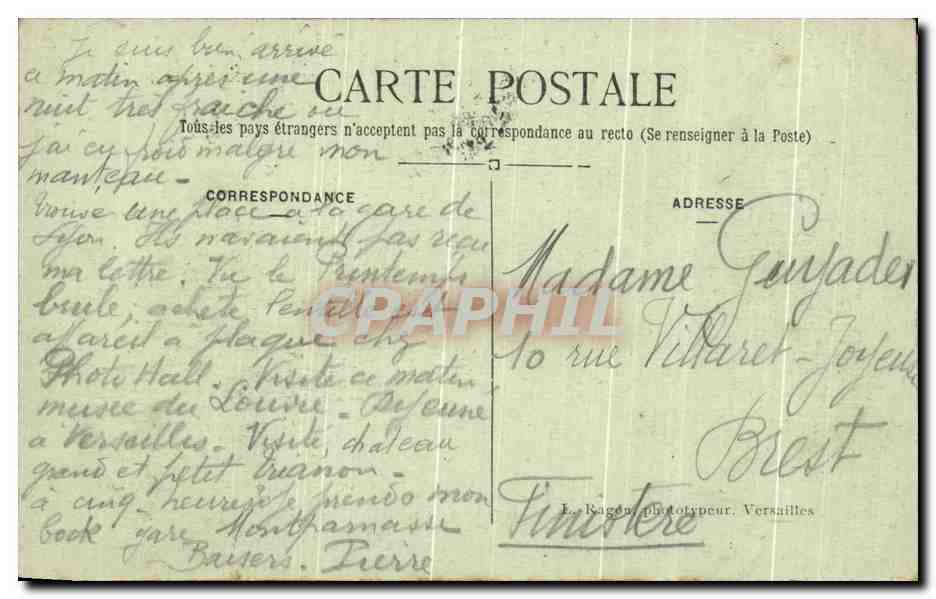 Je suis bien arrivé
ce matin après une
nuit très fraiche ou
j'ai eu froid malgré mon
manteau -
CARTE POSTALE
Tous les pays étrangers n'acceptent pas la correspondance au recto (Se renseigner à la Poste)
CORRESPONDANCE
trouvé une place a la gare de
Lyon. Ils n'avaient pas reçu
ma lettre. Vu le Printemps
brulé, acheté
appareil a plaque chez
Photo Hall. Visité ce matin
musée du Louvre - Dejeuné
à Versailles - Visité, chateau
grand et petit trianon -
à cinq heures je prends mon
bock gare Montparnasse
Baisers. Pierre
ADRESSE
Madame Guyader
10 rue Villaret-Joyeuse
Brest
Finistère
L. Ragon, phototypeur, Versailles
CPAPHIL